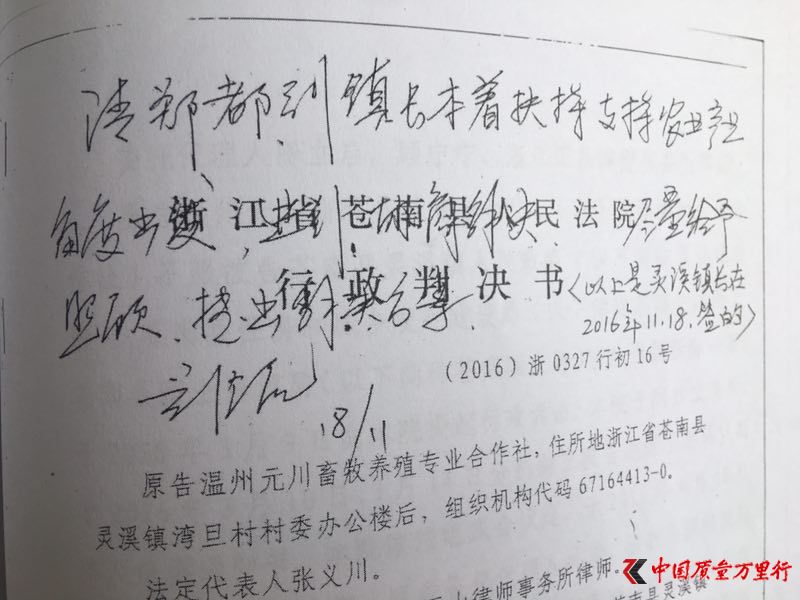 请郑都副镇长本着扶持支持农业产业
角度出发,尽量给予
浙江省苍南县人民法院
照顾、提出解决方案.
行政判决书
(以上是灵溪镇长在
2016年11.18.签的)
(2016)浙0327行初16号
18/11
原告温州元川畜牧养殖专业合作社,住所地浙江省苍南县
灵溪镇湾旦村村委办公楼后,组织机构代码67164413-0。
法定代表人张义川。
律师事务所律师。
中国质量万里行